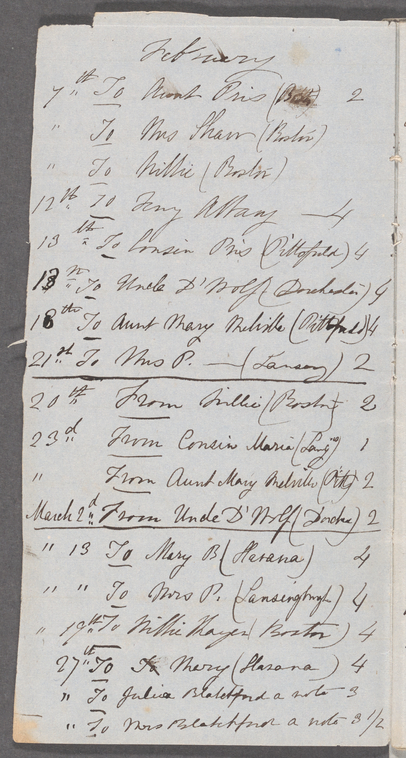 February
7th To Aunt Pris (Bos) 2
" To Mrs Shaw (Boston)
" To Willie (Boston)
12th To Feny Albany — 4
13th To Cousin Pris (Pittsfield) 4
13th To Uncle D'Wolf (Dorchester) 4
18th To Aunt Mary Melville (Pittsfield) 4
21st To Mrs P. — (Lansng) 2
20th From Willie (Boston) 2
23d From Cousin Maria (Lansg) 1
" From Aunt Mary Melville (Pitts) 2
March 2d From Uncle D'Wolf (Dorches) 2
" 13 To Mary B (Havana) 4
" " To Mrs P. (Lansingburgh) 4
" 19th To Willie Thayer (Boston) 4
27th To Mary (Havana) 4
" To Julia Blatchford a note 3
" To Mrs Blatchford a note 3 1/2